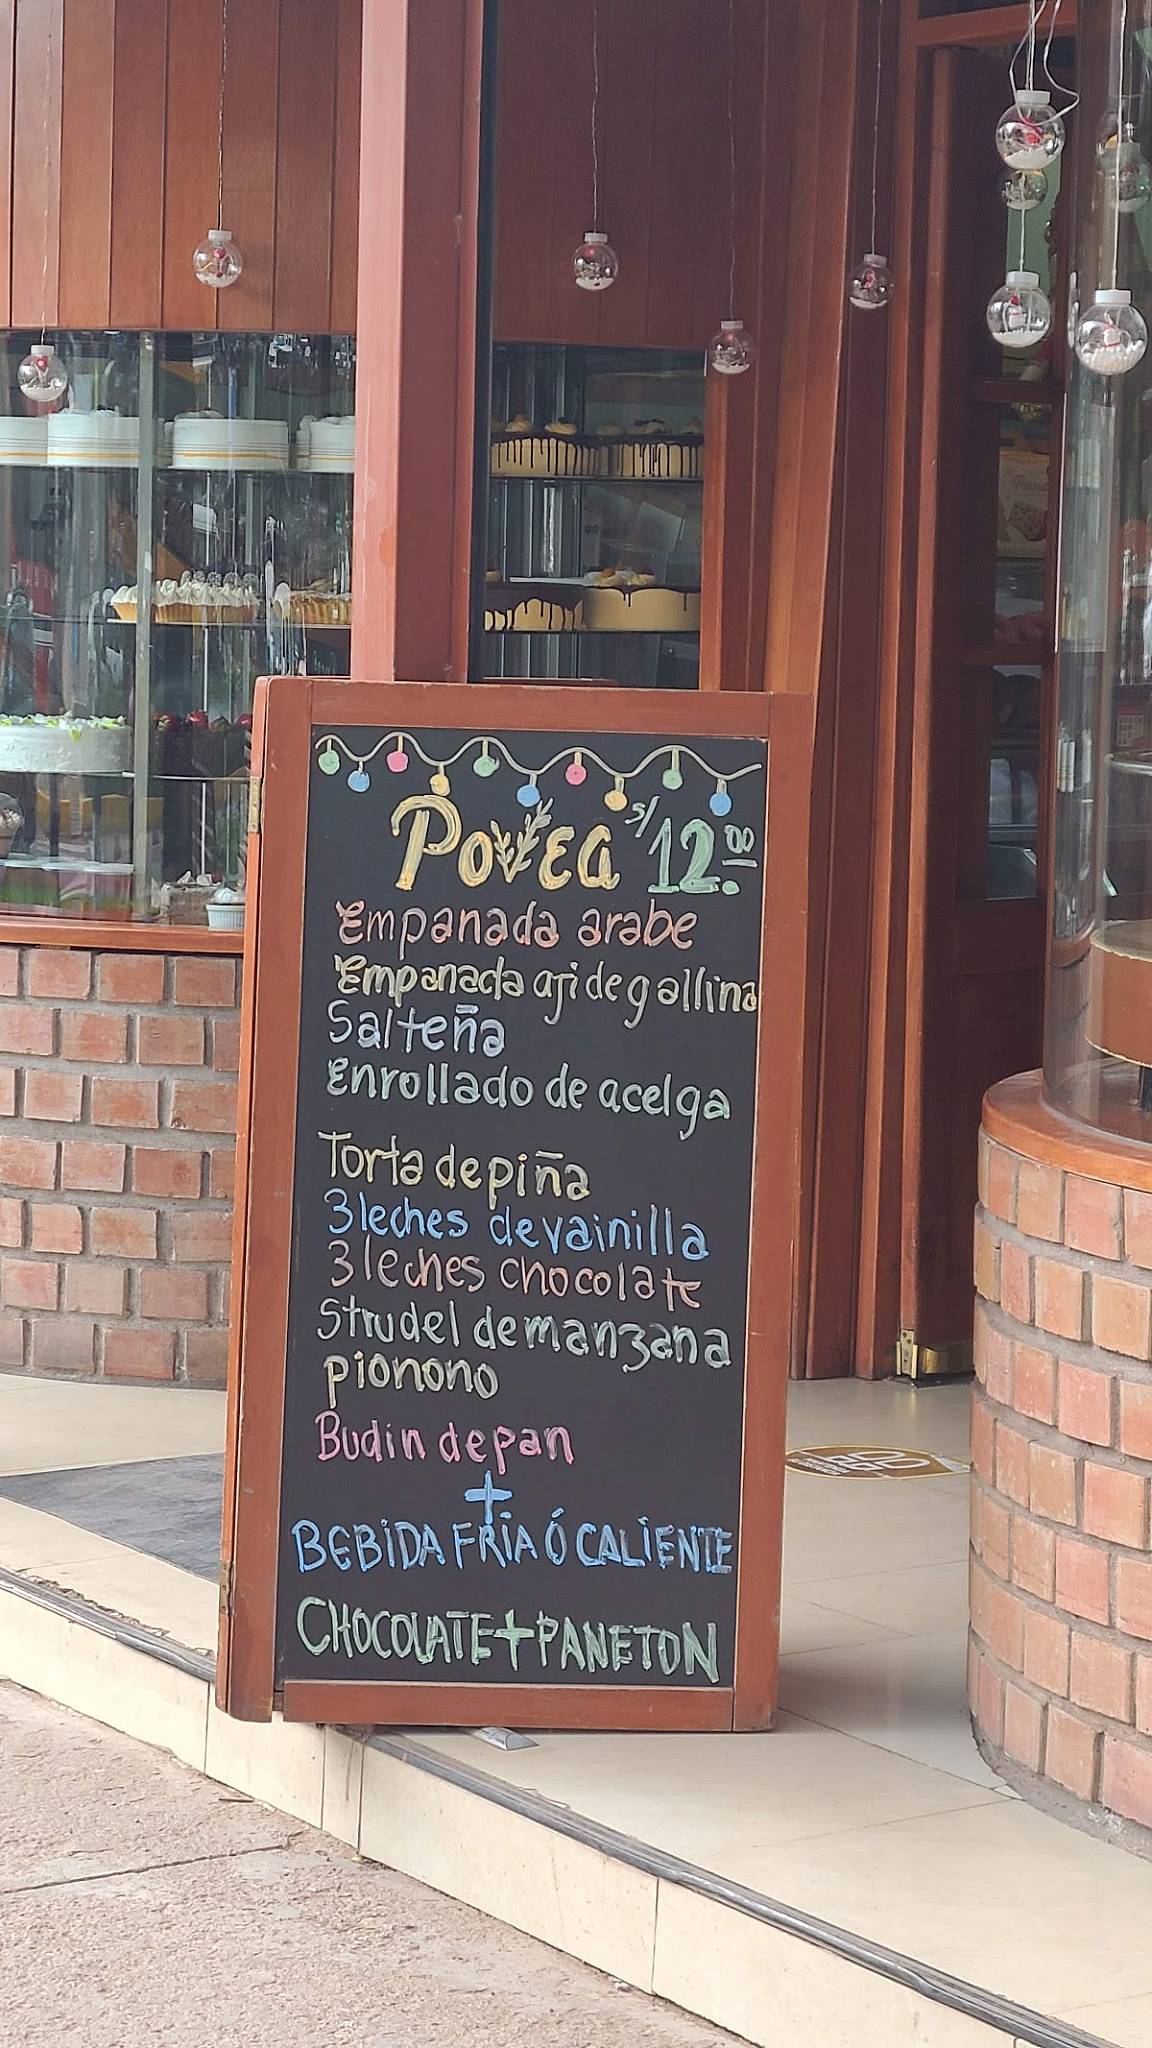 Povea S/12.00
Empanada arabe
Empanada aji de gallina
Salteña
Enrollado de acelga
Torta de piña
3 leches de vainilla
3 leches chocolate
Strudel de manzana
pionono
Budin de pan
+
BEBIDA FRIA Ó CALIENTE
CHOCOLATE + PANETON